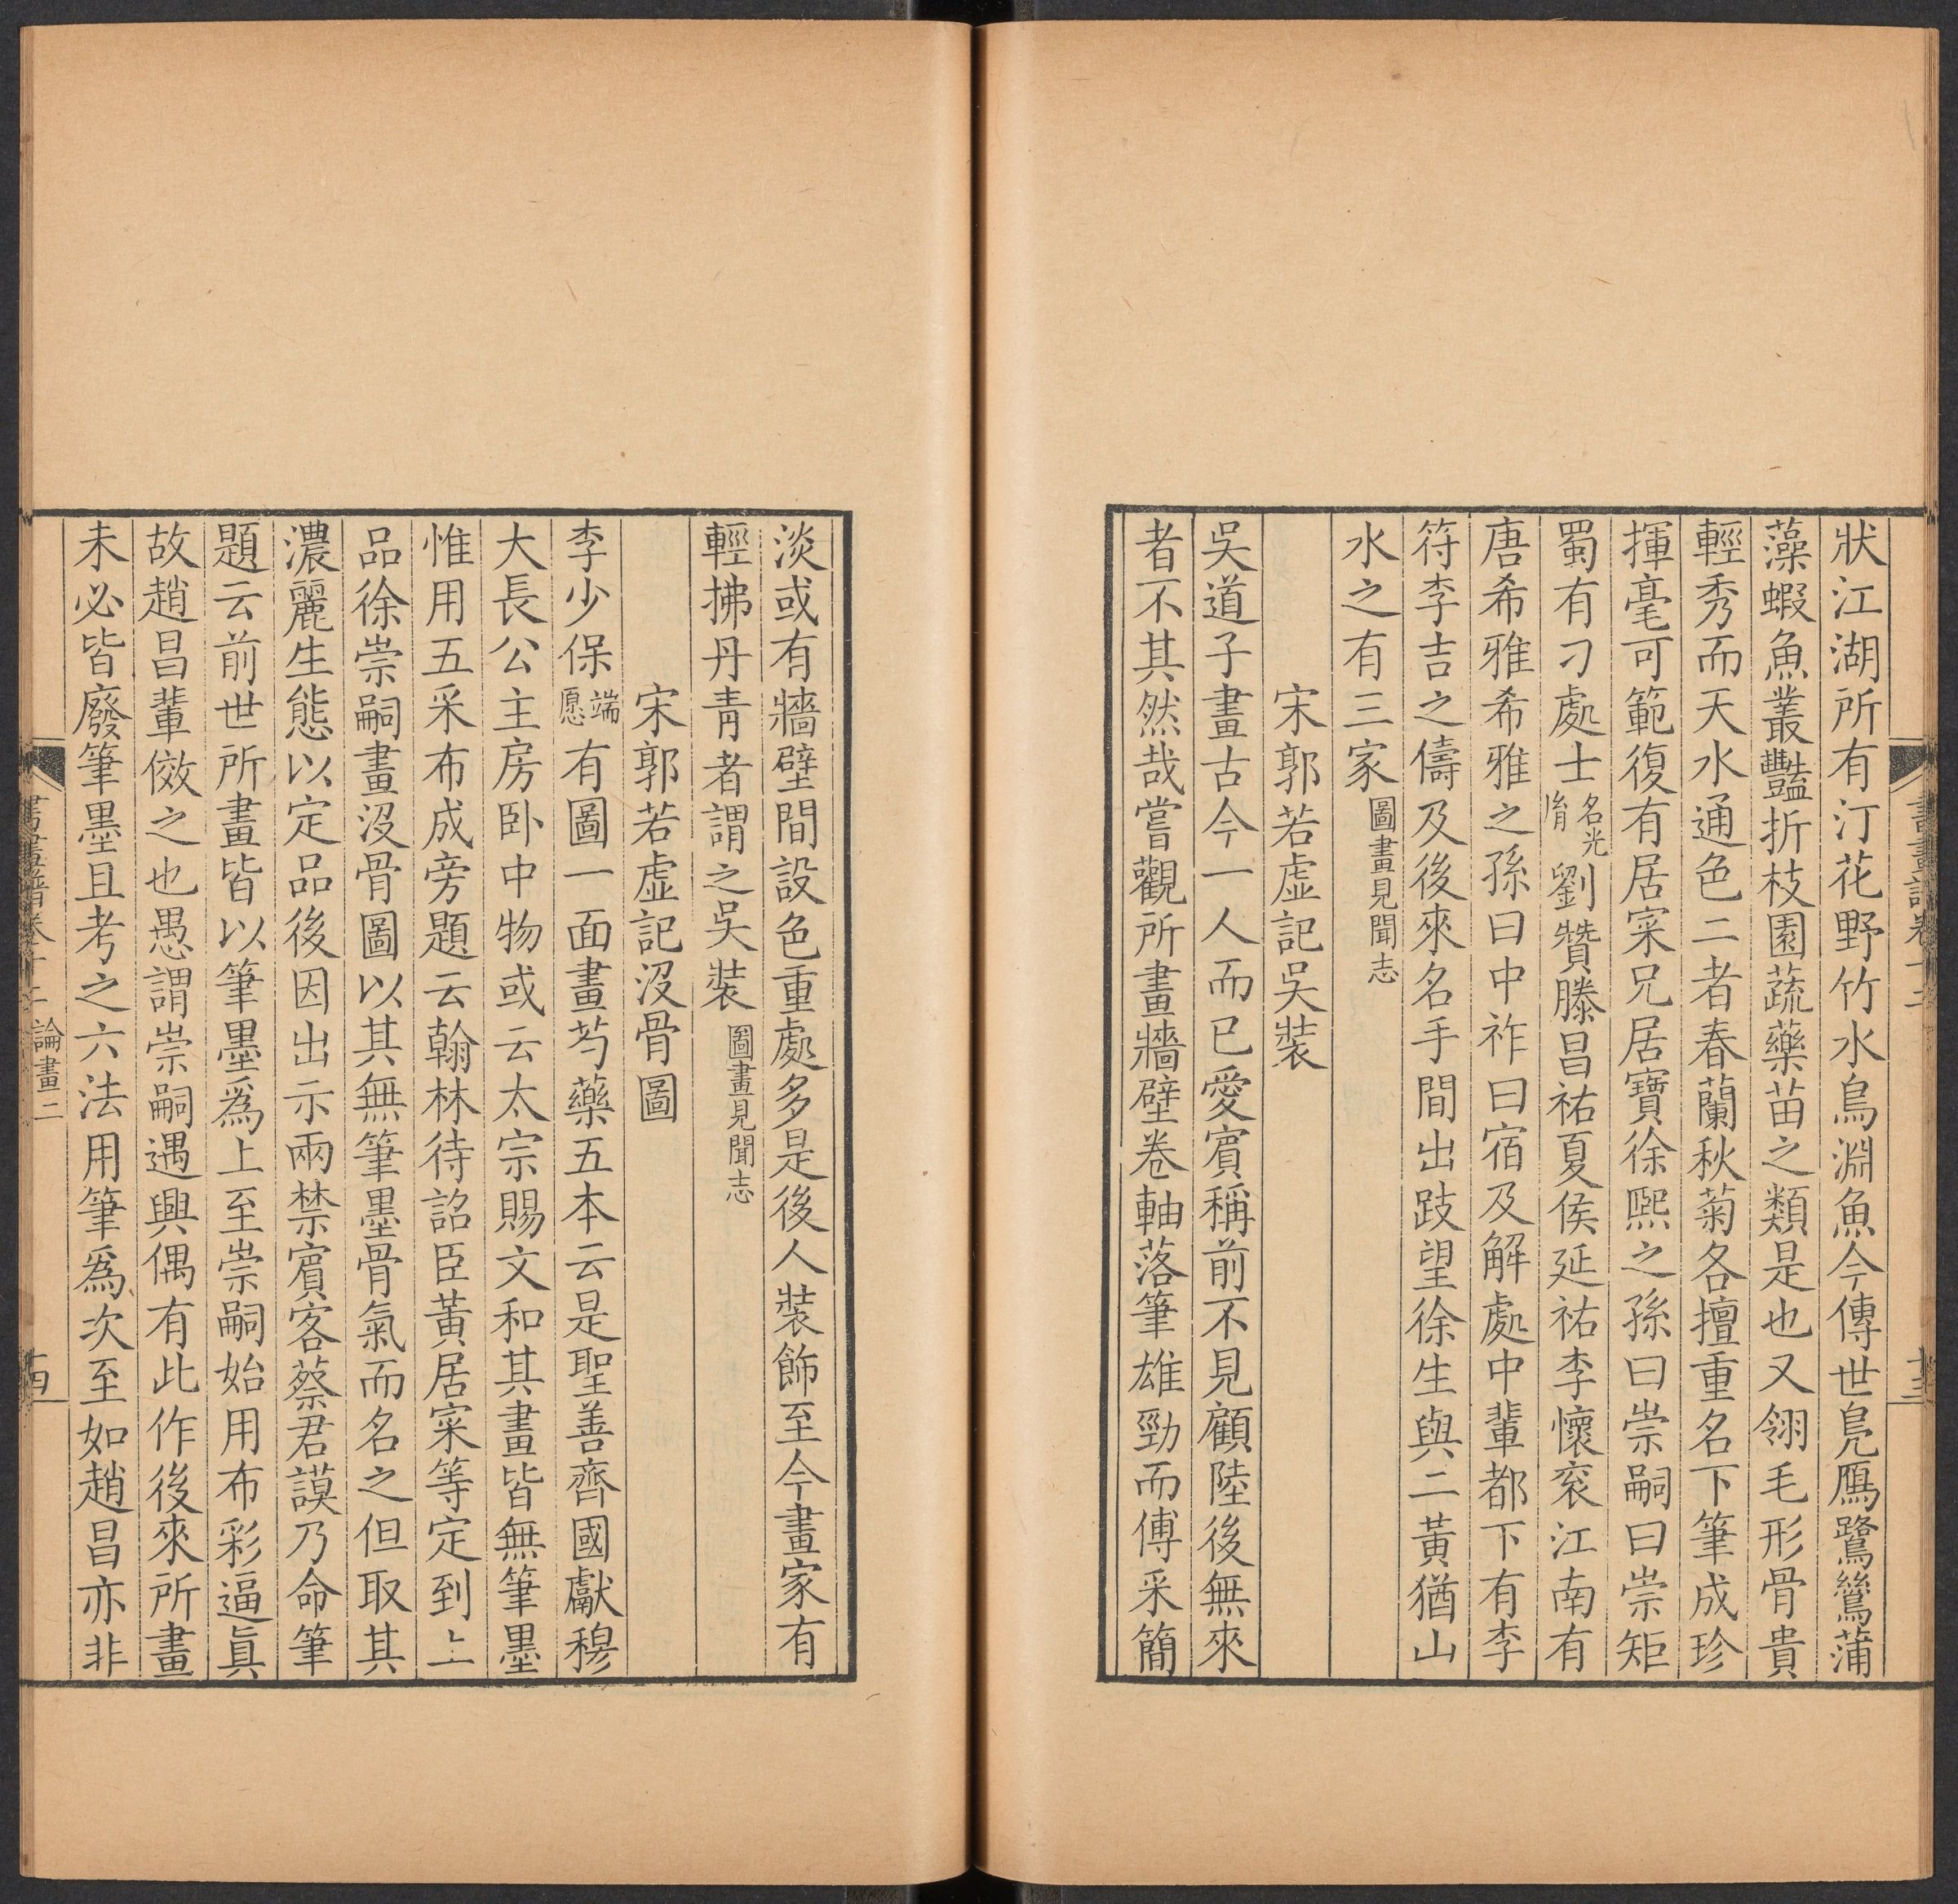 狀江湖所有汀花野竹水鳥淵魚今傳世鳧鴈鷺鷥蒲
藻蝦魚叢豔折枝園蔬藥苗之類是也又翎毛形骨貴
輕秀而天水通色二者春蘭秋菊各擅重名下筆成珍
揮毫可範復有居寀兄居寶徐熙之孫曰崇嗣曰崇矩
蜀有刁處士名光胤劉贊滕昌祐夏侯延祐李懷袞江南有
唐希雅希雅之孫曰中祚曰宿及解處中輩都下有李
符李吉之儔及後來名手間出跂望徐生與二黃猶山
水之有三家圖畫見聞志
宋郭若虛記吳裝
吳道子畫古今一人而已愛賓稱前不見顧陸後無來
者不其然哉嘗觀所畫牆壁卷軸落筆雄勁而傅采簡
淡或有牆壁間設色重處多是後人裝飾至今畫家有
輕拂丹青者謂之吳裝圖畫見聞志
宋郭若虛記沒骨圖
李少保端愿有圖一面畫芍藥五本云是聖善齊國獻穆
大長公主房臥中物或云太宗賜文和其畫皆無筆墨
惟用五采布成旁題云翰林待詔臣黃居寀等定到上
品徐崇嗣畫沒骨圖以其無筆墨骨氣而名之但取其
濃麗生態以定品後因出示兩禁賓客蔡君謨乃命筆
題云前世所畫皆以筆墨爲上至崇嗣始用布彩逼眞
故趙昌輩傚之也愚謂崇嗣遇興偶有此作後來所畫
未必皆廢筆墨且考之六法用筆爲次至如趙昌亦非
論畫二